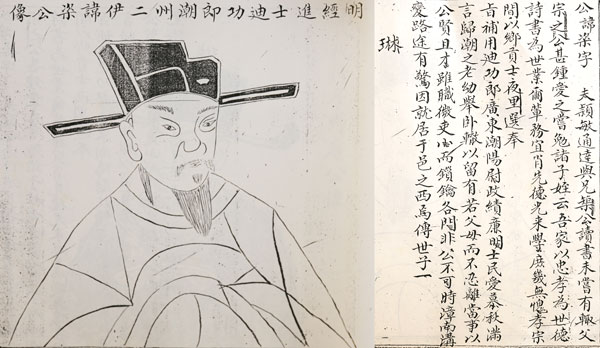 明經進士迪功郎潮州二伊諱柒公像
公諱柒字 夫穎敏通達與兄築公讀書未嘗有輟父
宗之公甚鍾愛之嘗勉諸子姪云吾家以忠孝為世德
詩書為世業爾輩務宜肖先德光來學庶幾無愧孝宗
間以鄉貢士夜里選奉
旨補用迪功郎廣東潮陽尉政績廉明士民愛慕秩滿
言歸潮之老幼舉卧轍以留有若父母而不忍離當事以
公賢且才雖職微吏必兩鎖鑰各閩非公不可時漳南溝
愛路途有驚因就居于邑之西為傳世子一
琳